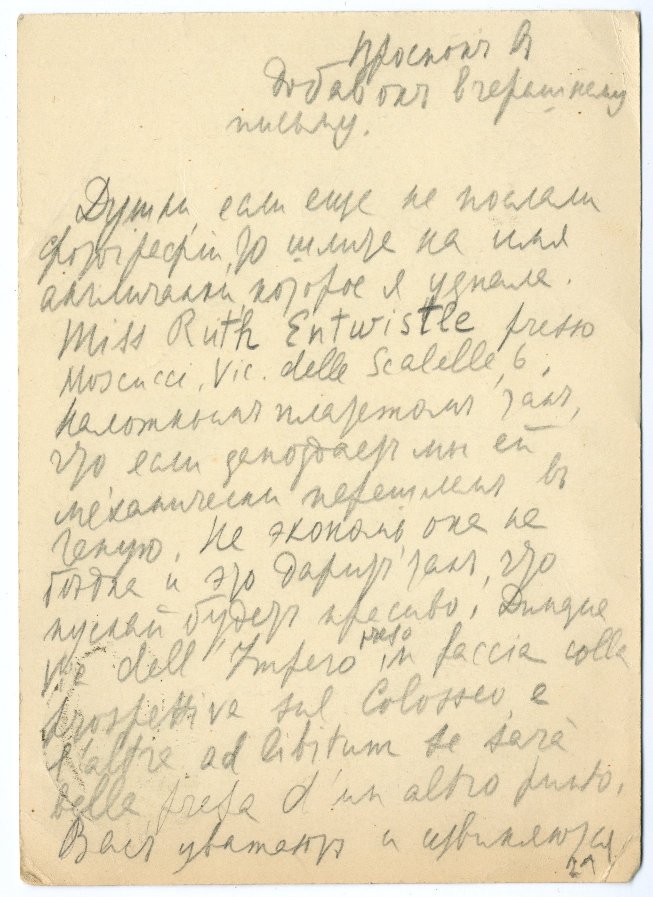 Добавокъ вчерашнему
письму.
Душки, если еще не послали
фотографій, то шлите на имя
англичанки, которое я узнала.
Miss Ruth Entwistle presso
Moscucci, Vic. delle Scalelle, 6,
наложнымъ платежомъ такъ,
что если
механически перешлютъ въ
Не экономь, она не
бѣдна и это даритъ, такъ, что
пускай будетъ красиво. Dunque
Via dell' Impero in faccia colla
prospettiva sul Colosseo e
l'altra ad libitum se sarà
bella, presa d'un altro punto.
Васъ уважаютъ и извиняются